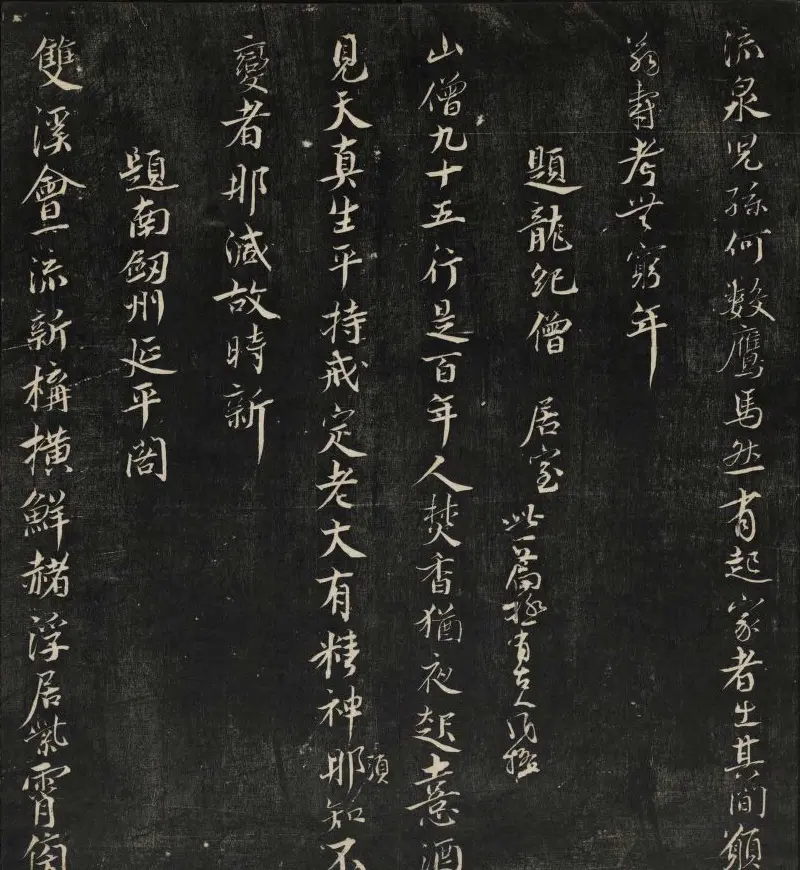 流泉児孫何數鷹馬然有起家者生其間願
翁壽考無窮年
題龍紀僧 居室 此一篇極有古人風格
山僧九十五行是百年人焚香猶夜起憙酒
見天真生平持戒定老大有精神那須知不
變者那減故時新
題南劔州延平閣
雙溪會一流新構橫鮮赭浮居紫霄